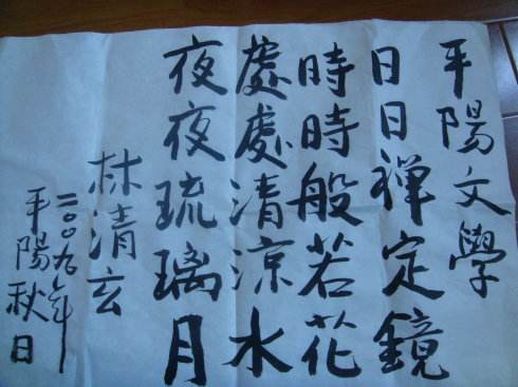 平陽文學
日日禅定鏡
時時般若花
處處清涼水
夜夜琉璃月
林清玄
二〇〇九年
平陽秋日